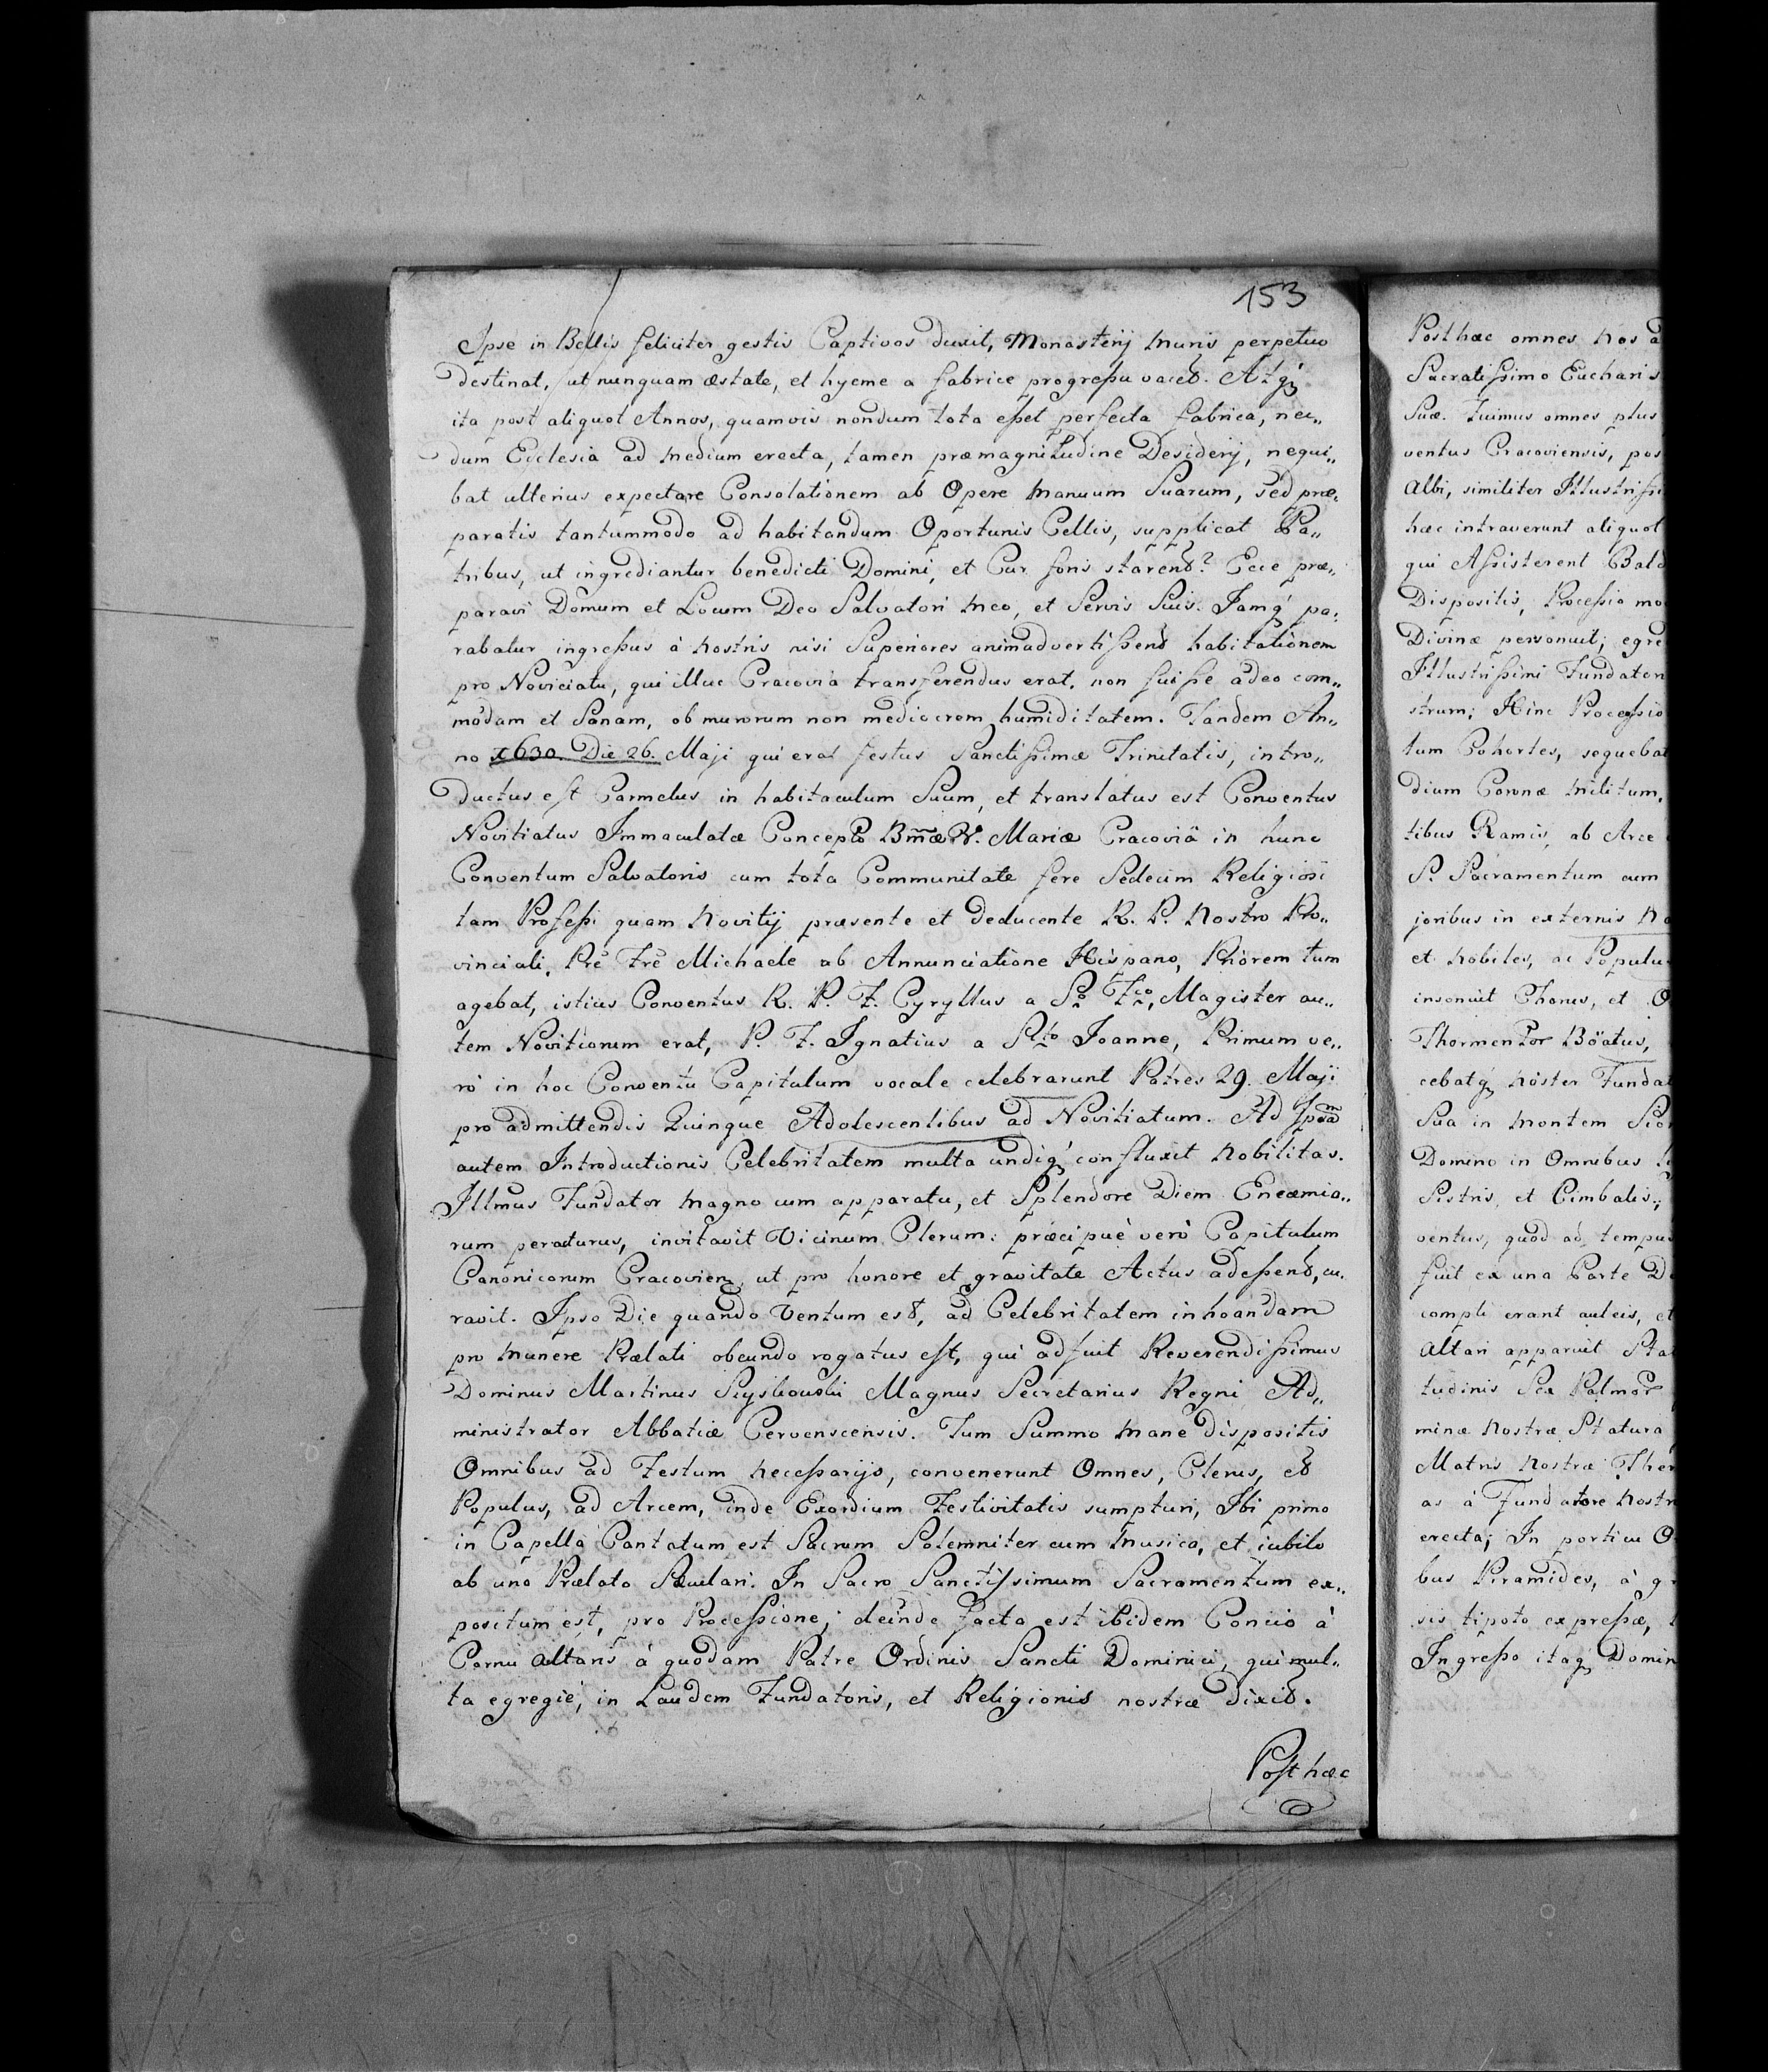 153
Ipse in Bellis feliciter gestis Captivos duxit, Monasterij muris perpetuo
destinat, ut nunquam æstate, et hyeme a fabrice progreßu vacet. Atq́
ita post aliquot Annos, quamvis nondum tota eßet perfecta fabrica, nec„
dum Ecclesia ad medium erecta, tamen præmagnitudine Desiderij, nequi„
bat ulterius expectare Consolationem ab Opere manuum Suarum, sed præ„
paratis tantummodo ad habitandum Oportunis Cellis, supplicat Pa„
tribus, ut ingrediantur benedicti Domini, et Cur foris starent? Ecce præ„
paravi Domum et Locum Deo Salvatori meo, et Servis Suis. Jamq́ pa„
rabatur ingreßus à nostris nisi Superiores animadvertißent habitationem
pro Noviciatu, qui illuc Cracoviâ transferendus erat, non fuiße adeo com„
modam et Sanam, ob murorum non mediocrem humiditatem. Tandem An„
no 1630. Die 26. Maji qui erat festus Sanctißimæ Trinitatis, intro„
ductus est Carmelus in habitaculum Suum, et translatus est Conventus
Novitiatus Immaculatæ Concepto Bmæ V. Mariæ Cracoviâ in hunc
Conventum Salvatoris cum tota Communitate fere Sedecim Religiosi
tam Profeßi quam Novitij præsente et deducente R. P. Nostro Pro„
vinciali, Pre Fre Michaele ab Annunciatione Hispano, Priorem tum
agebat, istius Conventus R. P. F. Cyryllus a So Fco, Magister au„
tem Novitiorum erat, P. F. Ignatius a Sto Joanne, Primum ve„
rò in hoc Conventu Capitulum vocale celebrarunt Patres 29. Maji
pro admittendis Quinque Adolescentibus ad Novitiatum. Ad Ipsam
autem Introductionis Celebritatem multa undiq́ confluxit Nobilitas.
Illmus Fundator magno cum apparatu, et Splendore Diem Encæmio„
rum peracturus, invitavit Vicinum Clerum: præcipuè verò Capitulum
Canonicorum Cracovien, ut pro honore et gravitate Actus adeßent, cu„
ravit. Ipso Die quando Ventum est, ad Celebritatem inhoandam
pro munere Prælati obeundo rogatus est, qui adfuit Reverendißimus
Dominus Martinus Szyskowski Magnus Secretarius Regni Ad„
ministrator Abbatiæ Cervenscensis. Tum Summo mane dispositis
Omnibus ad Festum neceßarijs, convenerunt Omnes, Clerus, et
Populus, ad Arcem, inde Exordium Festivitatis sumpturi, Ibi primo
in Capella Cantatum est Sacrum Solemniter cum musica, et iubilo
ab uno Prælato Sæculari. In Sacro Sanctissimum Sacramentum ex„
positum est, pro Proceßione; deinde facta est ibidem Concio à
Cornu altaris à quodam Patre Ordinis Sancti Dominici, qui mul„
ta egregiè, in Laudem Fundatoris, et Religionis nostræ dixit.
Post hæc
Post hæc omnes nos
Sacratißimo Eucharis
Suæ. Fuimus omnes plus
ventus Cracoviensis, pos
Albi, similiter Illustrißi
hæc intraverunt aliquot
qui Aßisterent Bald
Dispositis, Proceßio mo
Divinæ personuit; egre
Illustrißimi Fundator
strum; Hinc Proceßio
tum Cohortes, sequebat
dium Coronæ militum,
tibus Ramis, ab Arce
S. Sacramentum cum
joribus in externis
et nobiles, ac Populu
insonuit Chorus, et O
cebatq́ noster Fundat
Sua in montem Sion
Domino in Omnibus
Sistris, et Cimbalis;
ventus, quod ad tempus
fuit ex una Parte
compli erant auleis, et
altari apparuit Sta
tudinis Sex Palmor
minæ Nostræ Statura
Matris Nostræ Ther
as à Fundatore nostr
erecta; In porticu O
bus Piramides, à
sis tipoto expreßæ,
Ingreßo itaq́ Domin